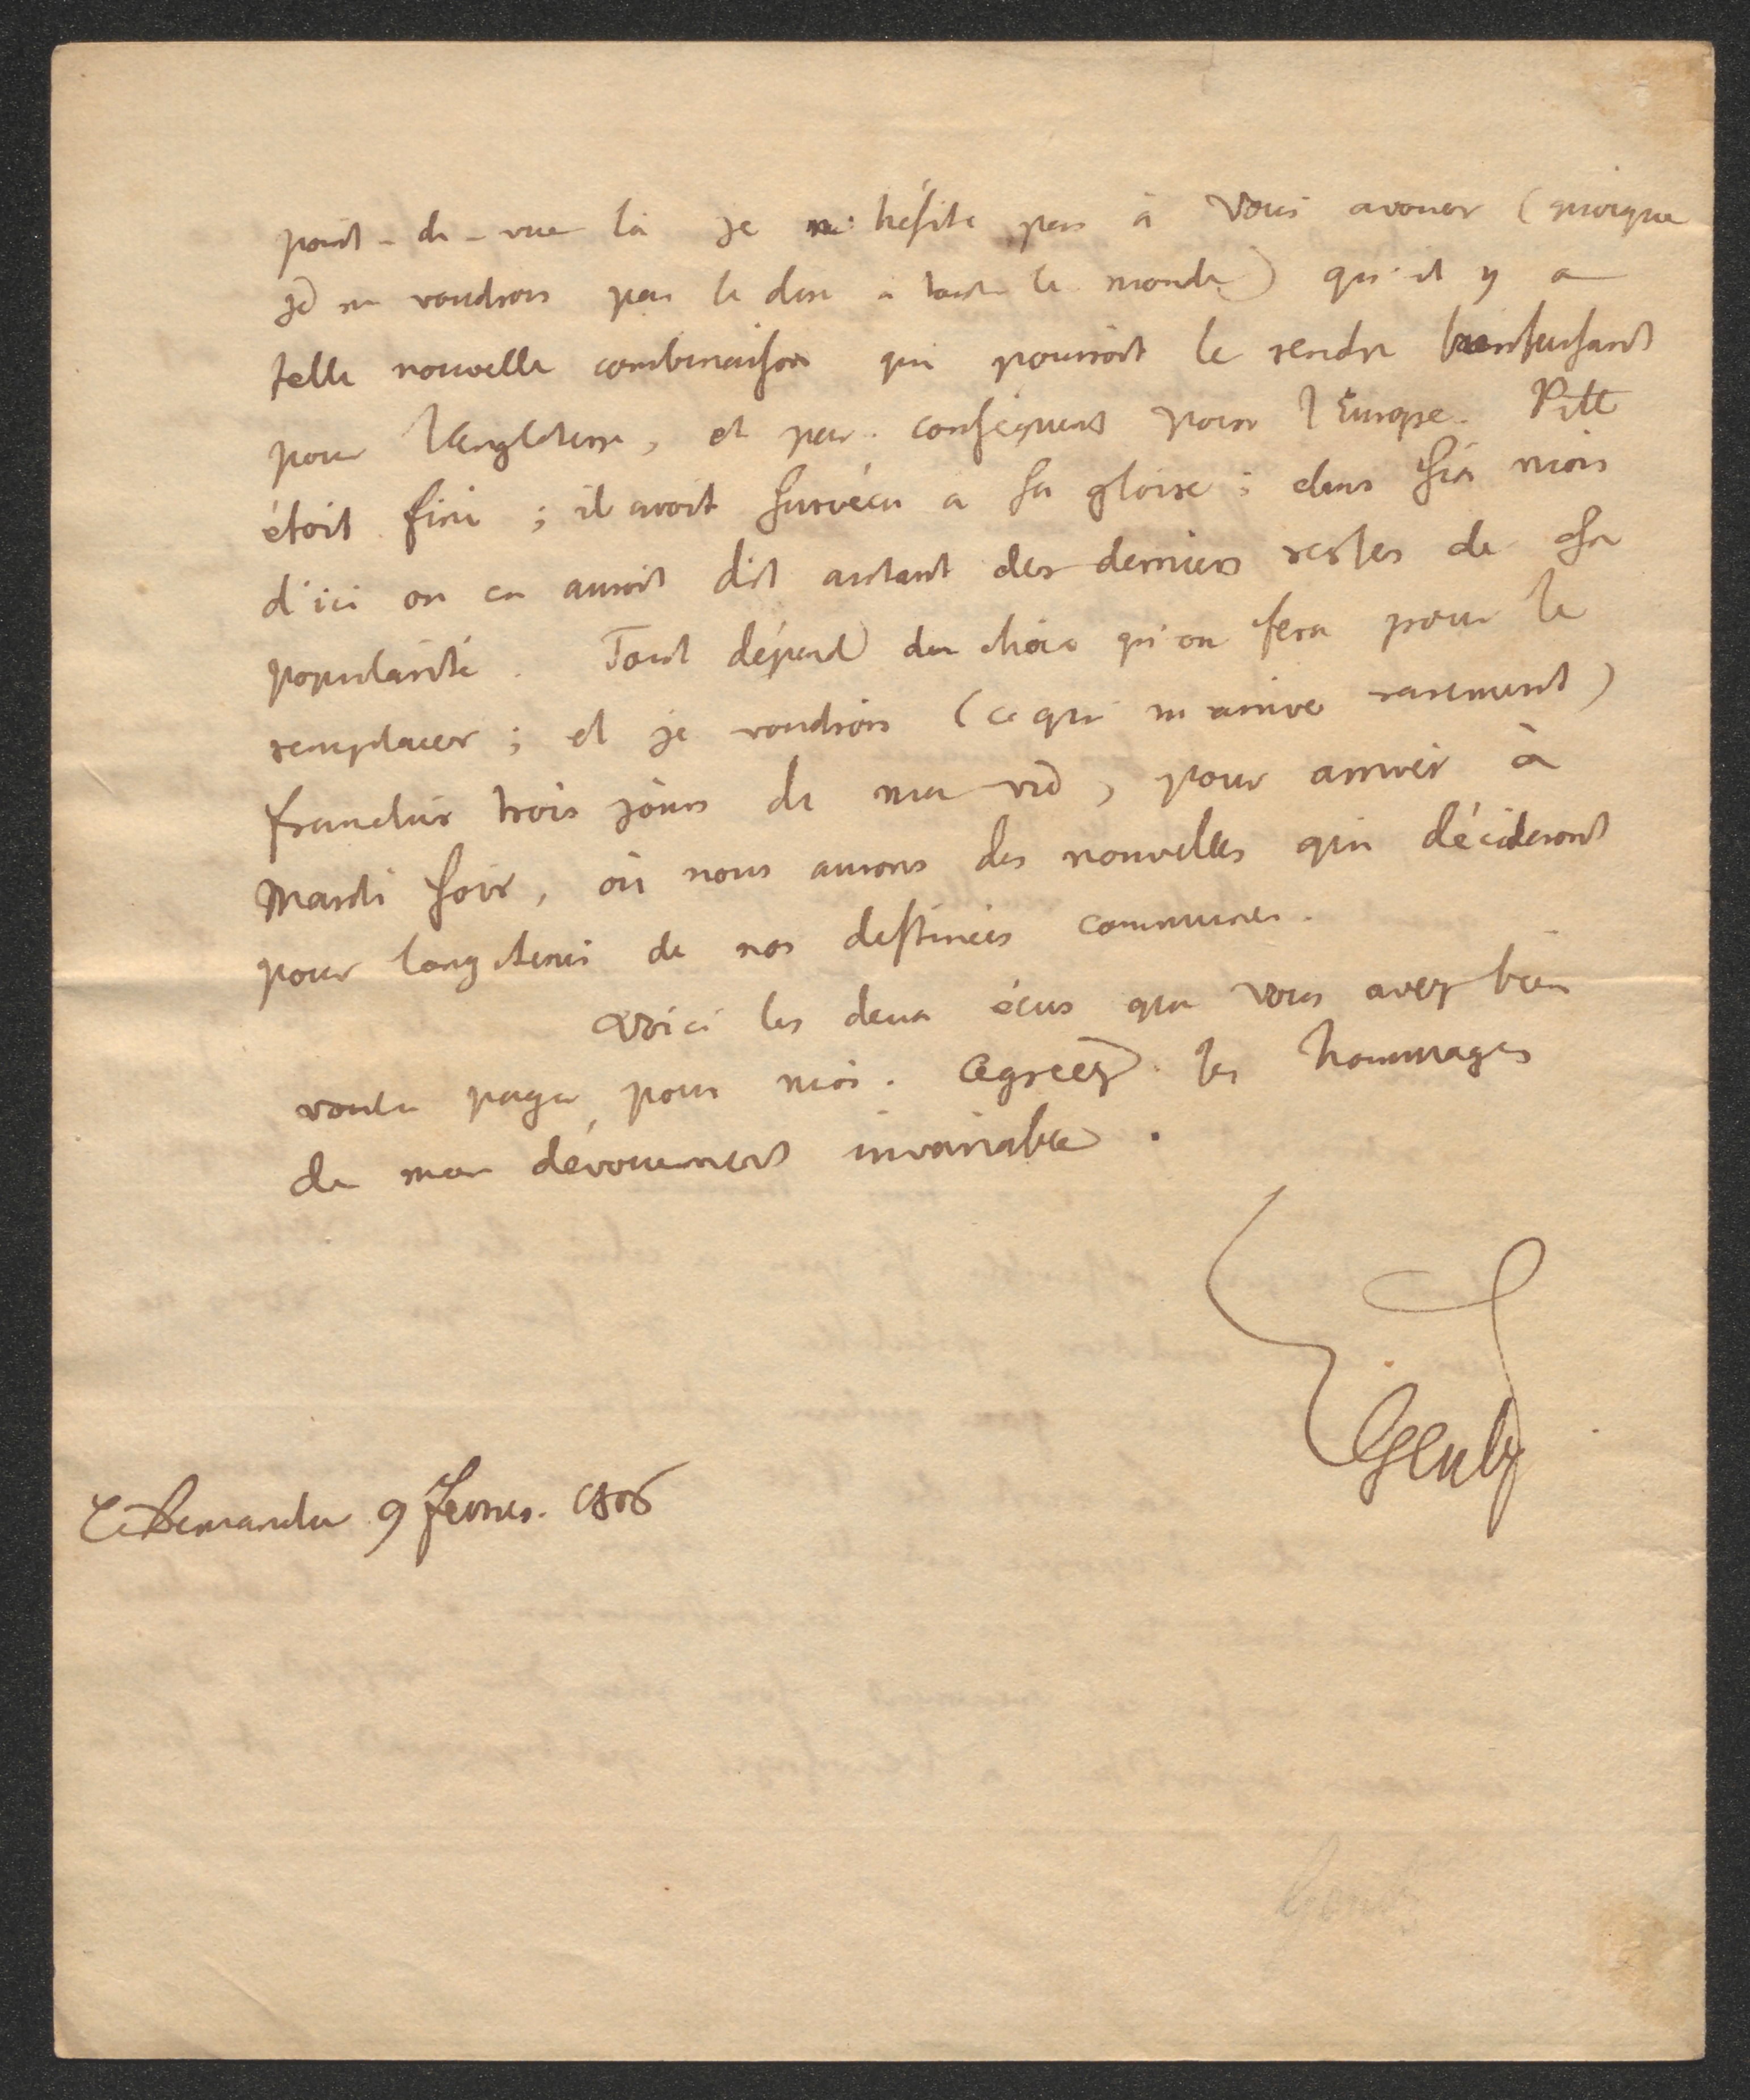 point-de-vue là je n'hésite pas à Vous avouer (quoique
je ne voudrois pas le dire à tout le monde) qu'il y a
telle nouvelle combinaison qui pourroit le rendre bienfaisant
pour l'Angleterre, et par conséquent pour l'Europe. Pitt
étoit fini; il avoit survécu à sa gloire; dans six mois
d'ici on en auroit dit autant des derniers restes de sa
popularité. Tout dépend du choix qu'on fera pour le
remplacer; et je voudrois (ce qui m'arrive rarement)
franchir trois jours de ma vie, pour arriver à
Mardi soir, où nous aurons des nouvelles qui décideront
pour longtems de nos destinées communes.
Voici les deux écus que Vous avez bien
voulu payer pour moi. Agréez les hommages
de mon dévouement invariable.
Gentz
Ce 9 Fevrier. 1806
Gentz